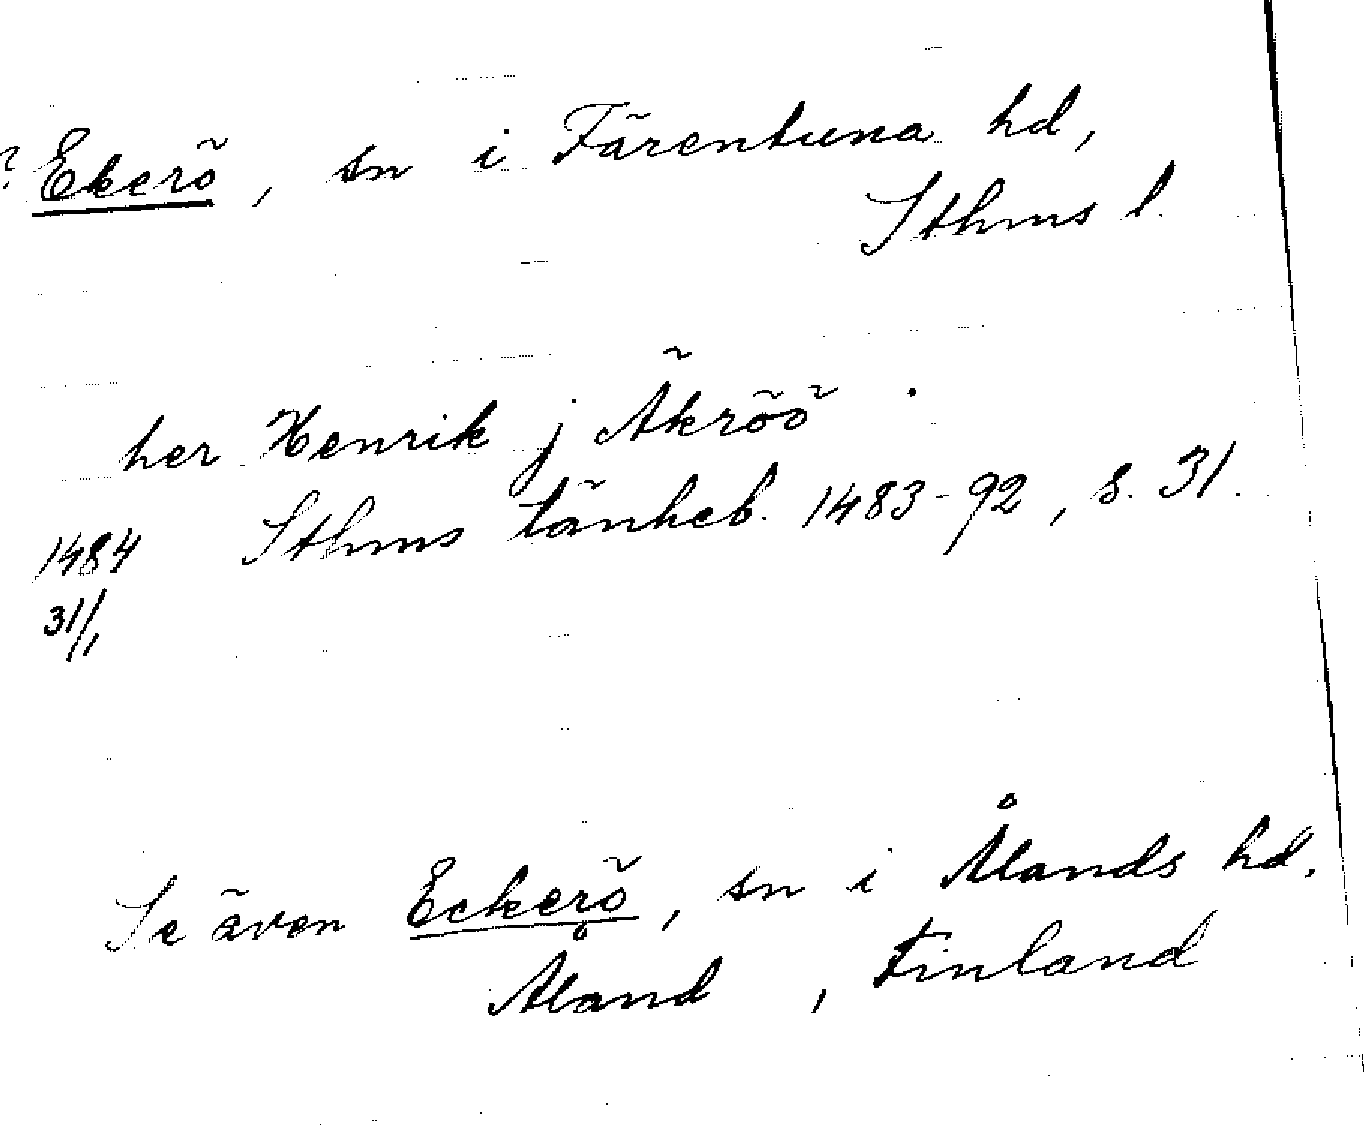 ? Ekerö, sn i Färentuna hd,
Sthms l.
her Henrik j Äkröö.
1484 Sthms tänkeb. 1483-92, s. 31.
31/1
Se även Eckerö, sn i Ålands hd.
Åland, Finland